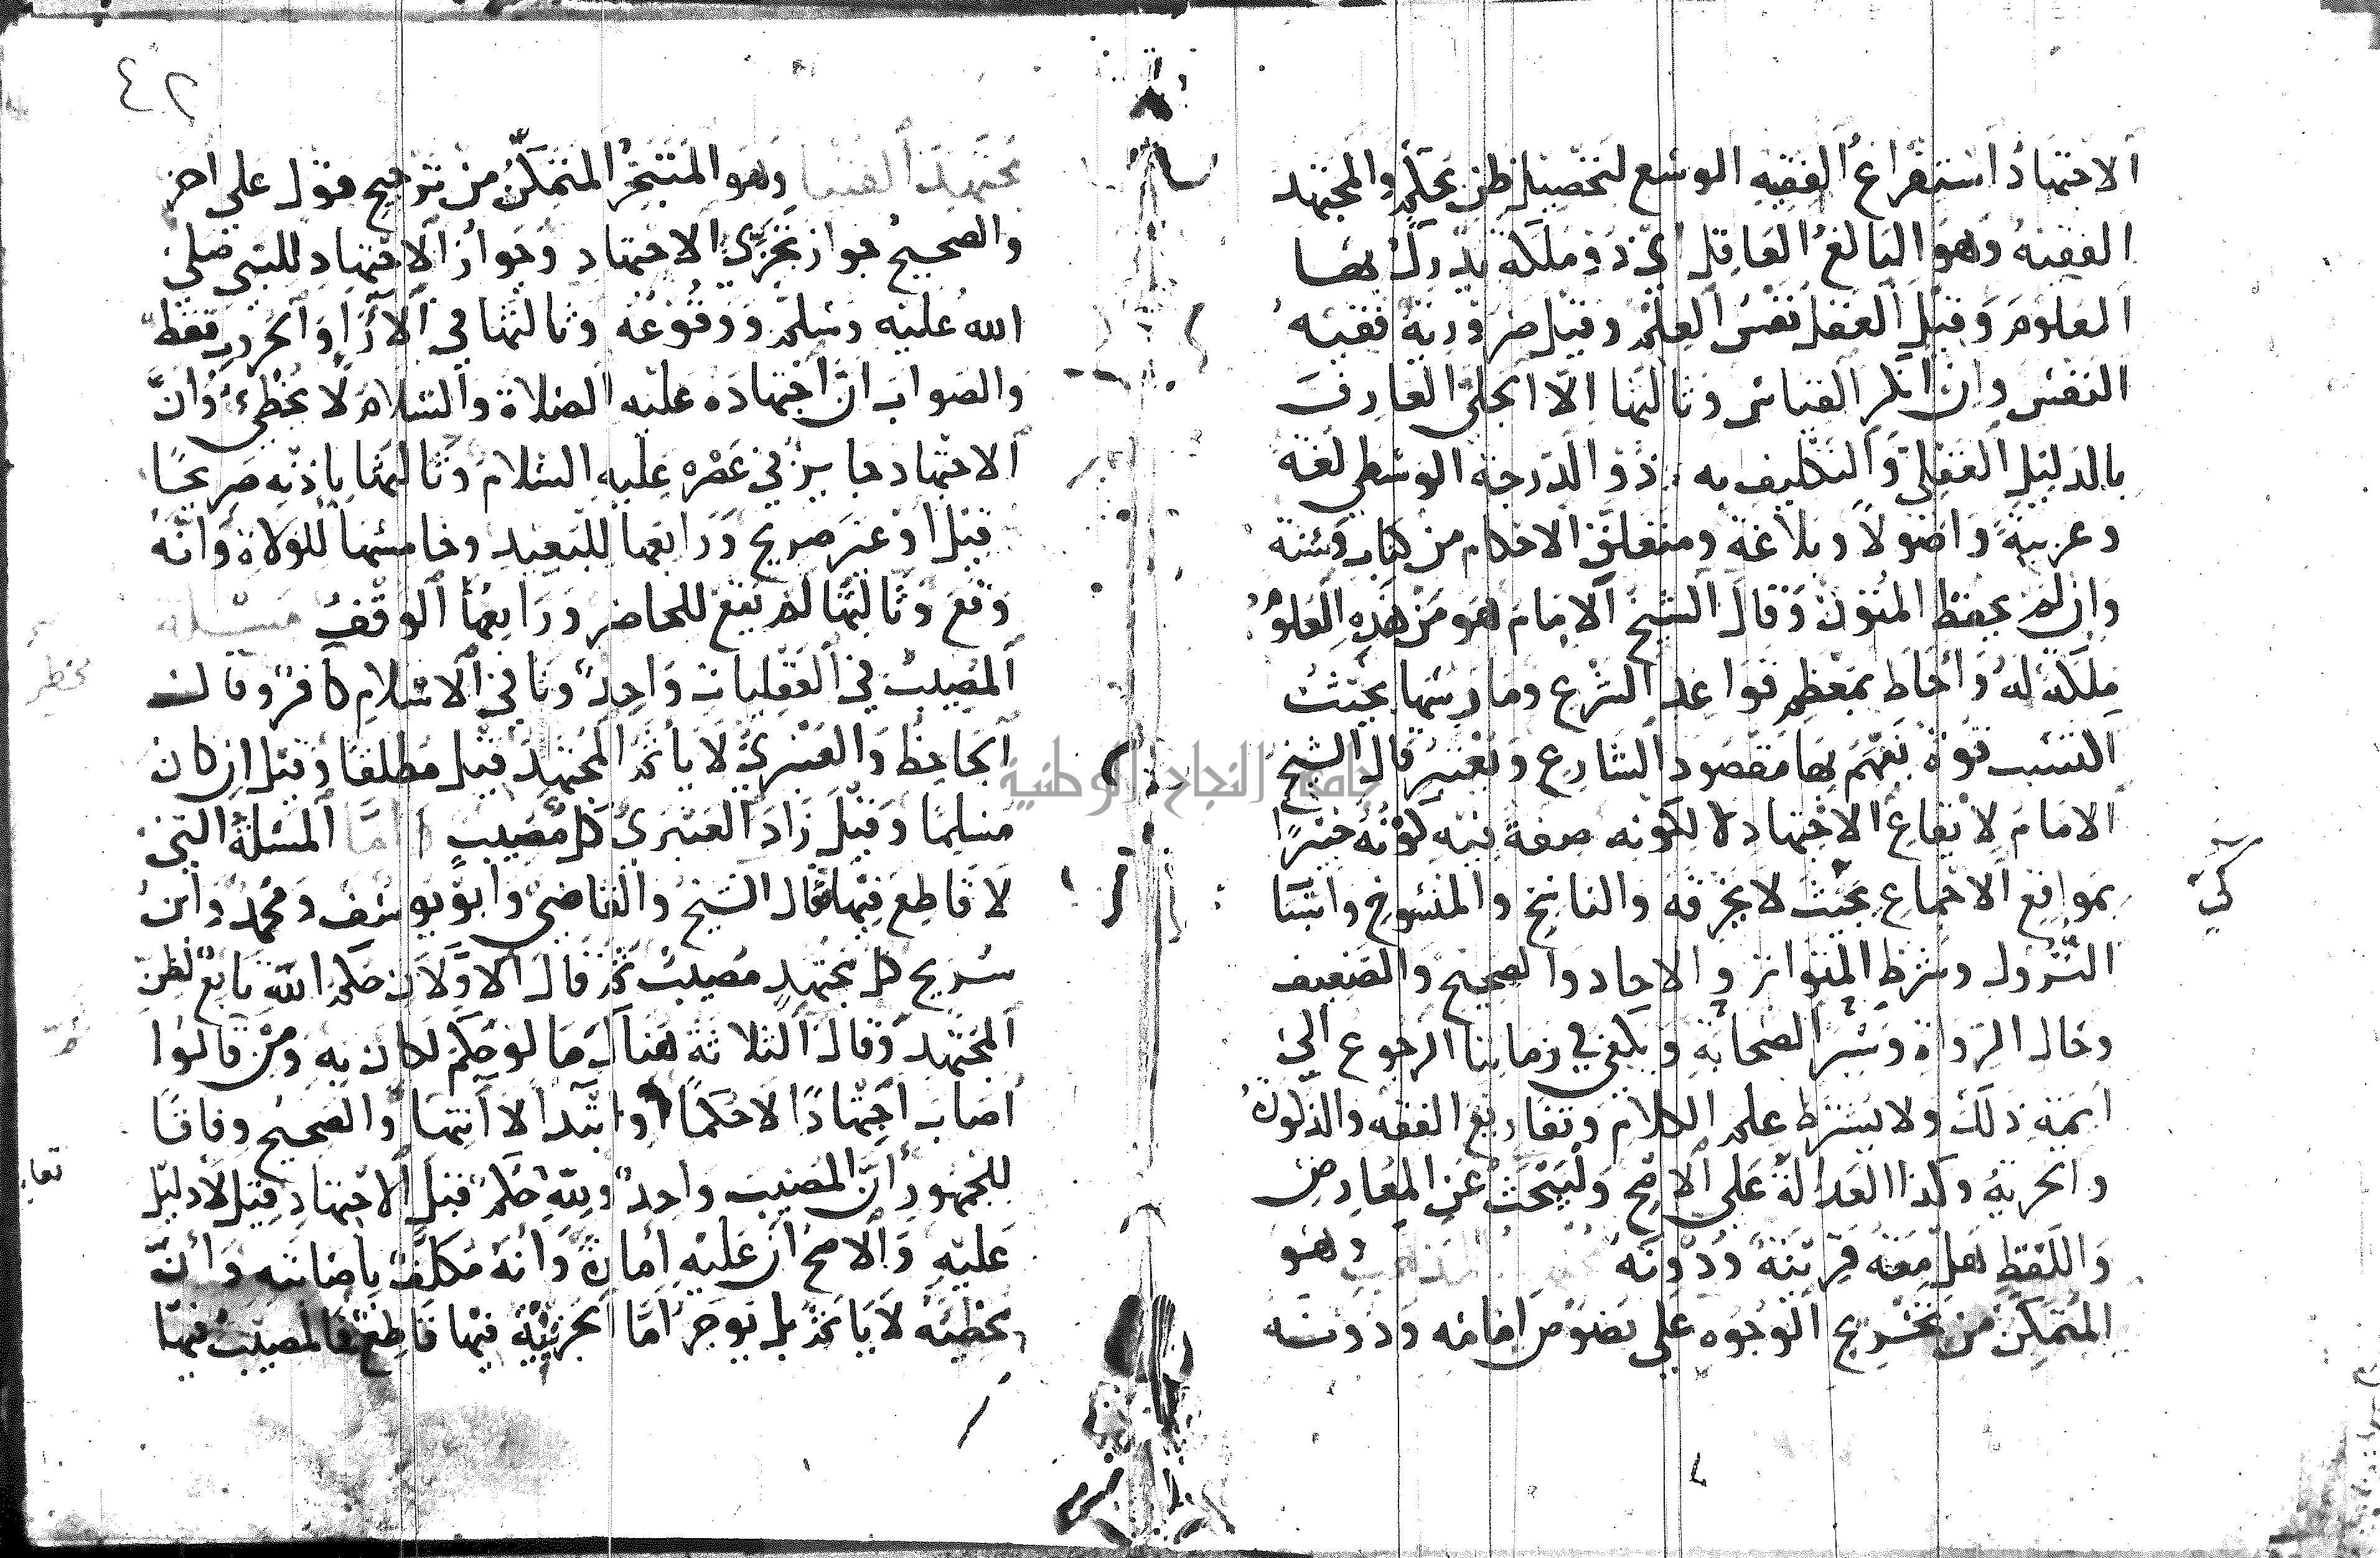 الاجتهاد استفراغ الفقيه الوسع لتحصيل ظن بحكم والمجتهد
الفقيه وهو البالغ العاقل اي ذو ملكة يدرك بها
المعلوم وقيل العقل نفس العلم وقيل ضروريه فقيه
النفس وان انكر القياس وثالثها الا الجلي العارف
بالدليل العقلي والتكليف به ذو الدرجة الوسطي لغة
وعربية واصولا وبلاغة ومتعلق الاحكام من كتاب وسنة
وان لم يحفظ المتون وقال الشيخ الامام هو من هذه العلوم
ملكة له واحاط بمعظم قواعد الشرع ومارسها بحيث
اكتسب قوة يفهم بها مقصود الشارع ويعتبر قال الشيخ
الامام لايقاع الاجتهاد لا لكونه صفة فيه كونه خبيرا
بمواقع الاجماع بحيث لا يخرقه والناسخ والمنسوخ واسباب
النزول وشرط المتواتر والاحاد والصحيح والضعيف
وحال الرواة وسير الصحابة ويكفي في زماننا الرجوع الي
ايمة ذلك ولا يشترط علم الكلام وتفاريع الفقه والذكورة
والحرية وكذا العدالة علي الاصح وليبحث عن المعارض
واللفظ هل معه قرينة ودونه مجتهد المذهب وهو
المتمكن من تخريج الوجوه علي نصوص امامه ودونه
٤٢
مجتهد الفتيا وهو المتبحر المتمكن من ترجيح قول علي اخر
والصحيح جواز تجزي الاجتهاد وجواز الاجتهاد للنبي صلي
الله عليه وسلم ووقوعه وثالثها في الآرا والحروب فقط
والصواب ان اجتهاده عليه الصلاة والسلام لا يخطئ وان
الاجتهاد جايز في عصره عليه السلام وثالثها باذنه صريحا
قيل او غير صريح ورابعها للبعيد وخامسها للولاة وانه
وقع وثالثها لم يقع للحاضر ورابعها الوقف مسئلة
المصيب في العقليات واحد ونافي الاسلام كافر وقال
الجاحظ والعنبري لا ياثم المجتهد قيل مطلقا وقيل ان كان
مسلما وقيل زاد العنبري كل مصيب اما المسئلة التي
لا قاطع فيها فقال الشيخ والقاضي وابو يوسف ومحمد وابن
سريج كل مجتهد مصيب ثم قال الاولان حكم الله تابع لظن
المجتهد وقال الثلاثة هناك ما لو حكم لكان به ومن قالوا
اصاب اجتهادا لا حكما وابتدا لا انتها والصحيح وفاقا
للجمهور ان المصيب واحد ولله حكم قبل الاجتهاد قيل لا دليل
عليه والاصح ان عليه امارة وانه مكلف باصابته وان
مخطيه لا ياثم بل يوجر اما الجزئية فيها قاطع فالمصيب فيها
جامعة النجاح الوطنية